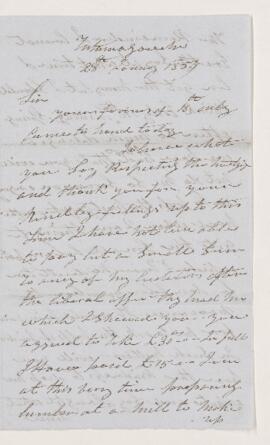 Tatamagouche
28th January 1859
Sir
your favour of 15th
Came to hand to day
I notice what
you Say Respecting the
and thank you for your
kind feelings up to this
time I have not been able
to pay but a Small Sum
to any of my Creditors often
the liberal offer they made me
which I Shewed you - you
agreed to Take £30 in full
I Have paid £15 I am
at this very time preparing
lumber at a Mill to Make
up